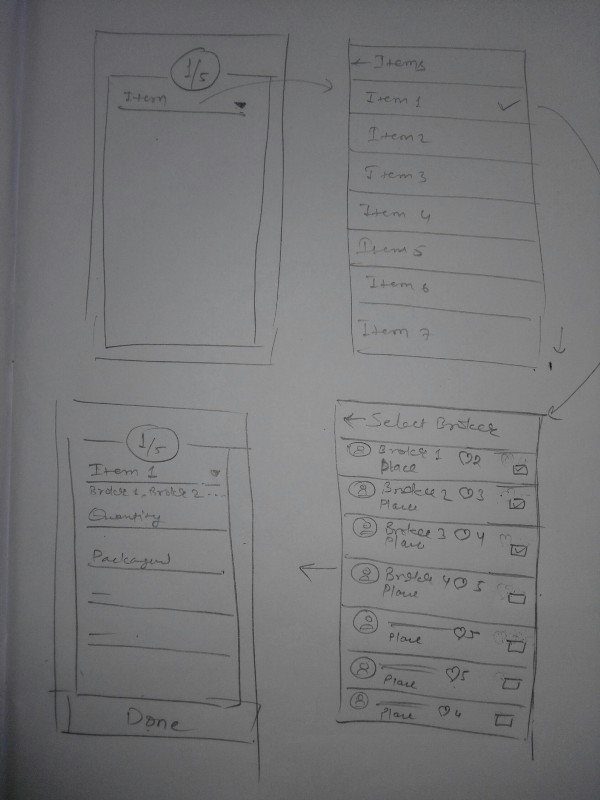 1/5
Item
← Items
Item 1
Item 2
Item 3
Item 4
Item 5
Item 6
Item 7
← Select Broker
Broker 1 ♡2
Place
Broker 2 ♡3
Place
Broker 3 ♡4
Place
Broker 4 ♡5
Place
♡5
Place
♡5
Place
♡4
Place
1/5
Item 1
Broker 1, Broker 2 ...
Quantity
Done